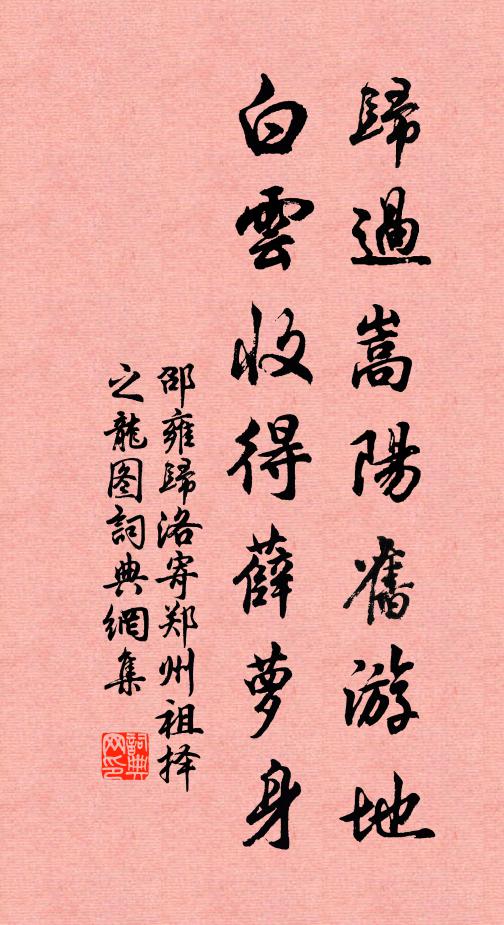 歸過嵩陽舊游地
白雲收得薜萝身
邵雍歸洛寄郑州祖择
之龍图詞典網集
詞典
网印